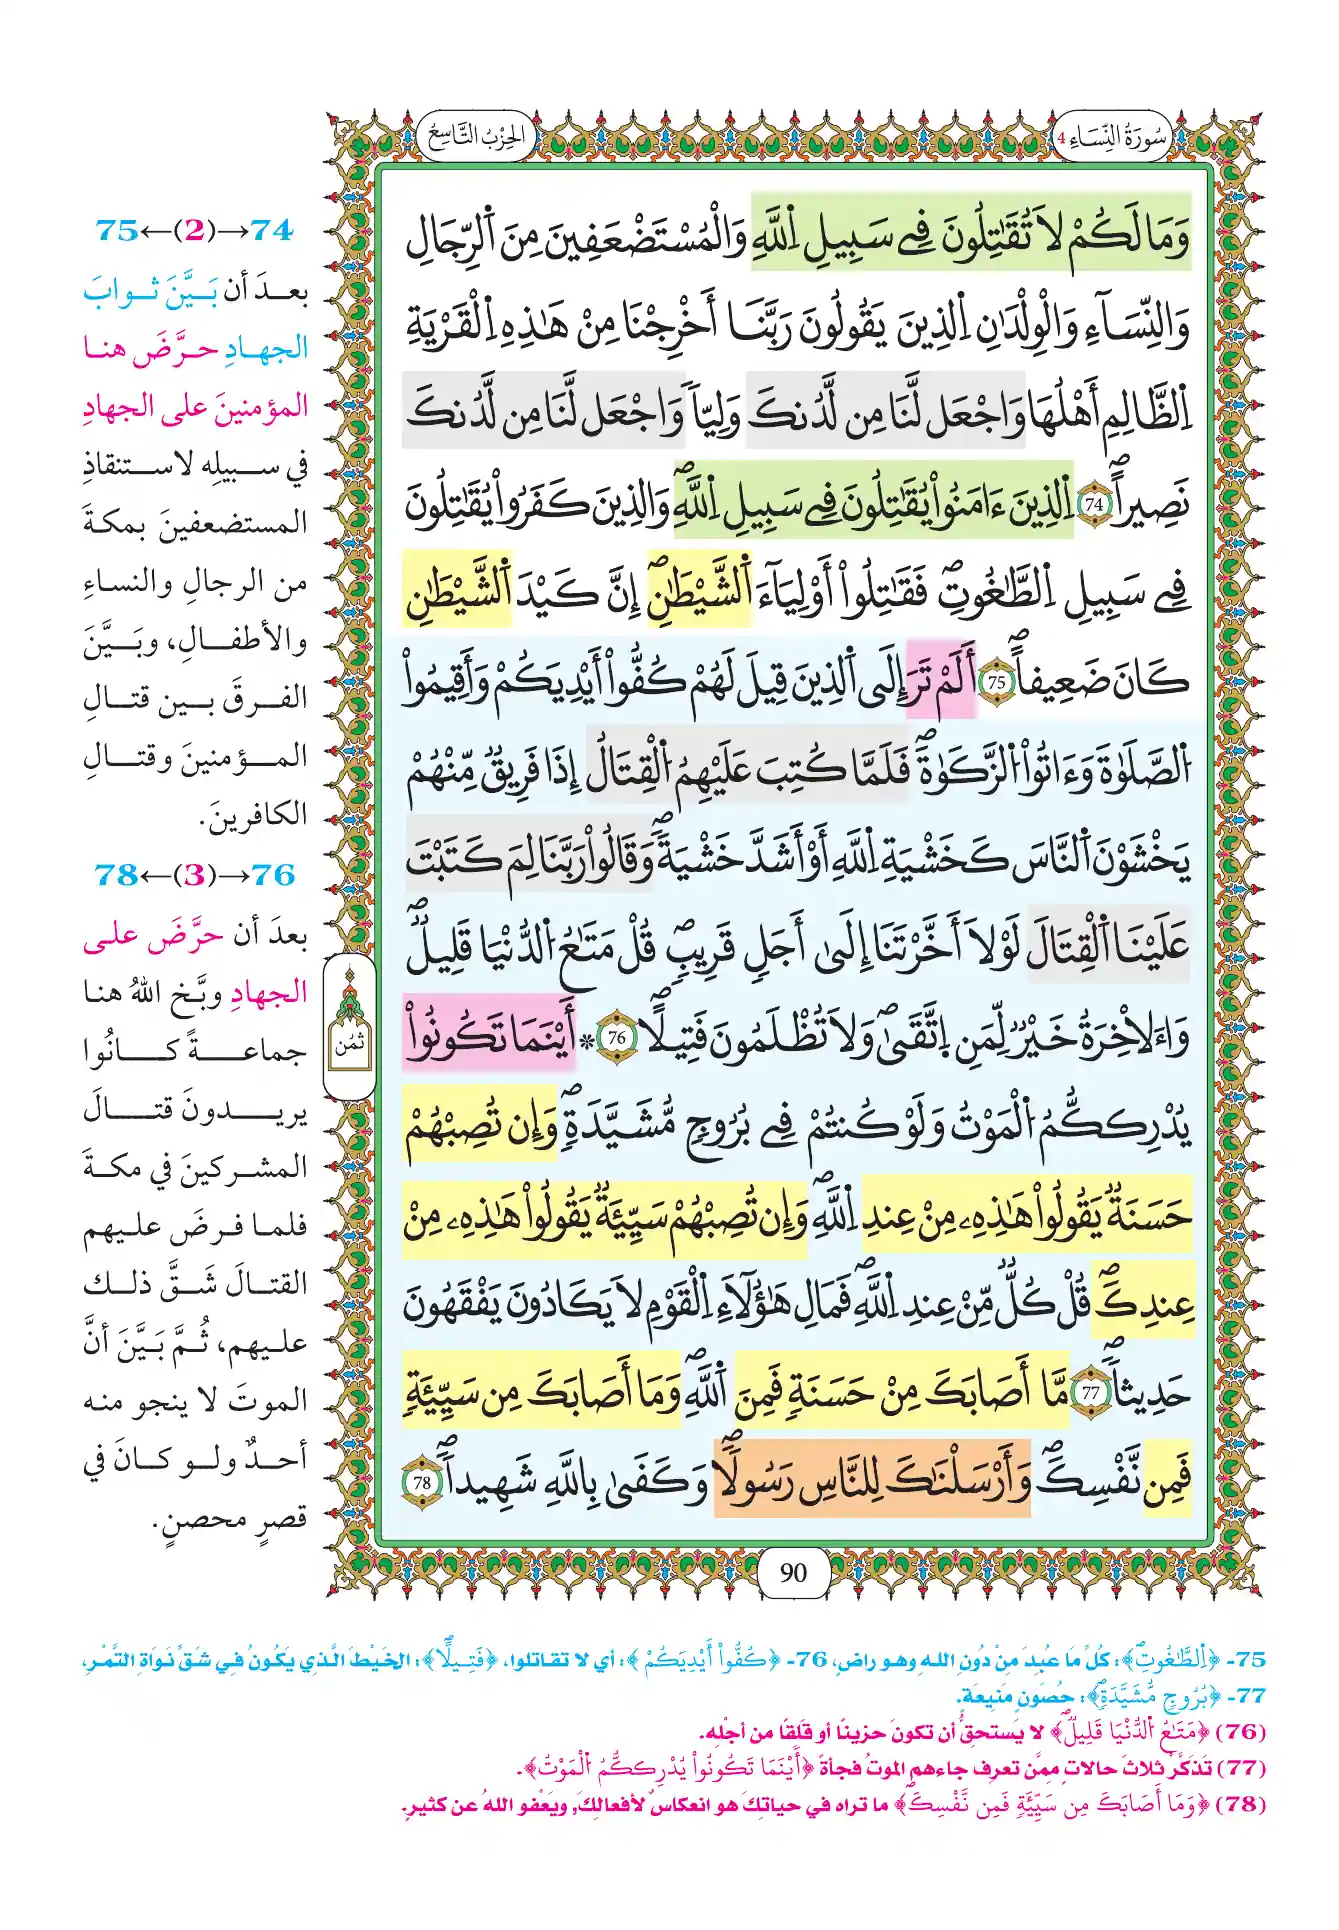 سُورَةُ النِّسَاءِ 4
الحِزْبُ التَّاسِعُ
وَمَا لَكُمْ لَا تُقَٰتِلُونَ فِے سَبِيلِ اِ۬للَّهِ وَالْمُسْتَضْعَفِينَ مِنَ اَ۬لرِّجَالِ
وَالنِّسَآءِ وَالْوِلْدَٰنِ اِ۬لذِينَ يَقُولُونَ رَبَّنَا أَخْرِجْنَا مِنْ هَٰذِهِ اِ۬لْقَرْيَةِ
اِ۬لظَّالِمِ أَهْلُهَا وَاجْعَل لَّنَا مِن لَّدُنكَ وَلِيّاً وَاجْعَل لَّنَا مِن لَّدُنكَ
نَصِيراًۖ 74 اِ۬لذِينَ ءَامَنُواْ يُقَٰتِلُونَ فِے سَبِيلِ اِ۬للَّهِۖ وَالذِينَ كَفَرُواْ يُقَٰتِلُونَ
فِے سَبِيلِ اِ۬لطَّٰغُوتِۖ فَقَٰتِلُواْ أَوْلِيَآءَ اَ۬لشَّيْطَٰنِۖ إِنَّ كَيْدَ اَ۬لشَّيْطَٰنِ
كَانَ ضَعِيفاًۖ 75 أَلَمْ تَرَ إِلَى اَ۬لذِينَ قِيلَ لَهُمْ كُفُّواْ أَيْدِيَكُمْ وَأَقِيمُواْ
اُ۬لصَّلَوٰةَ وَءَاتُواْ اُ۬لزَّكَوٰةَۖ فَلَمَّا كُتِبَ عَلَيْهِمُ اُ۬لْقِتَالُ إِذَا فَرِيقٌ مِّنْهُمْ
يَخْشَوْنَ اَ۬لنَّاسَ كَخَشْيَةِ اِ۬للَّهِ أَوْ أَشَدَّ خَشْيَةًۖ وَقَالُواْ رَبَّنَا لِمَ كَتَبْتَ
عَلَيْنَا اَ۬لْقِتَالَ لَوْلَا أَخَّرْتَنَا إِلَىٰ أَجَلٍ قَرِيبٍۖ قُلْ مَتَٰعُ اُ۬لدُّنْيَا قَلِيلٌۖ
وَالَاخِرَةُ خَيْرٌ لِّمَنِ اِ۪تَّقَىٰۖ وَلَا تُظْلَمُونَ فَتِيلاًۖ 76 * أَيْنَمَا تَكُونُواْ
يُدْرِككُّمُ اُ۬لْمَوْتُ وَلَوْ كُنتُمْ فِے بُرُوجٍ مُّشَيَّدَةٍۖ وَإِن تُصِبْهُمْ
حَسَنَةٌ يَقُولُواْ هَٰذِهِۦ مِنْ عِندِ اِ۬للَّهِۖ وَإِن تُصِبْهُمْ سَيِّئَةٌ يَقُولُواْ هَٰذِهِۦ مِنْ
عِندِكَۖ قُلْ كُلٌّ مِّنْ عِندِ اِ۬للَّهِۖ فَمَالِ هَٰؤُلَآءِ اِ۬لْقَوْمِ لَا يَكَادُونَ يَفْقَهُونَ
حَدِيثاًۖ 77 مَّا أَصَابَكَ مِنْ حَسَنَةٍ فَمِنَ اَ۬للَّهِۖ وَمَا أَصَابَكَ مِن سَيِّئَةٍ
فَمِن نَّفْسِكَۖ وَأَرْسَلْنَٰكَ لِلنَّاسِ رَسُولاًۖ وَكَفَىٰ بِاللَّهِ شَهِيداًۖ 78
ثُمُن
90
74→(2)←75
بعدَ أن بَيَّنَ ثوابَ
الجهادِ حرَّضَ هنا
المؤمنينَ على الجهادِ
في سبيلِه لاستنقاذِ
المستضعفينَ بمكةَ
من الرجالِ والنساءِ
والأطفالِ، وبَيَّنَ
الفرقَ بين قتالِ
المؤمنينَ وقتالِ
الكافرينَ.
76→(3)←78
بعدَ أن حرَّضَ على
الجهادِ وبَّخ اللهُ هنا
جماعةً كانُوا
يريدونَ قتالَ
المشركينَ في مكةَ
فلما فرضَ عليهم
القتالَ شَقَّ ذلك
عليهم، ثُمَّ بَيَّنَ أنَّ
الموتَ لا ينجو منه
أحدٌ ولو كانَ في
قصرٍ محصنٍ.
75- ﴿اِ۬لطَّٰغُوتِۖ﴾: كُلُّ مَا عُبِدَ مِنْ دُونِ اللهِ وهو راضٍ، 76- ﴿كُفُّواْ أَيْدِيَكُمْ﴾: أي لا تقاتلوا، ﴿فَتِيلاًۖ﴾: الخَيْطَ الَّذِي يَكُونُ فِي شَقِّ نَوَاةِ التَّمْرِ،
77- ﴿بُرُوجٍ مُّشَيَّدَةٍۖ﴾: حُصُونٍ مَنِيعَةٍ.
(76) ﴿مَتَٰعُ اُ۬لدُّنْيَا قَلِيلٌۖ﴾ لا يَستحقُّ أن تكونَ حزينًا أو قَلقًا من أجْلِه.
(77) تَذكَّرْ ثلاثَ حالاتٍ ممَّن تعرِف جاءهم الموتُ فجأةً ﴿أَيْنَمَا تَكُونُواْ يُدْرِككُّمُ اُ۬لْمَوْتُ﴾.
(78) ﴿وَمَا أَصَابَكَ مِن سَيِّئَةٍ فَمِن نَّفْسِكَۖ﴾ ما تراه في حياتِكَ هو انعكاسٌ لأفعالِكَ، ويَعْفو اللهُ عن كثيرٍ.